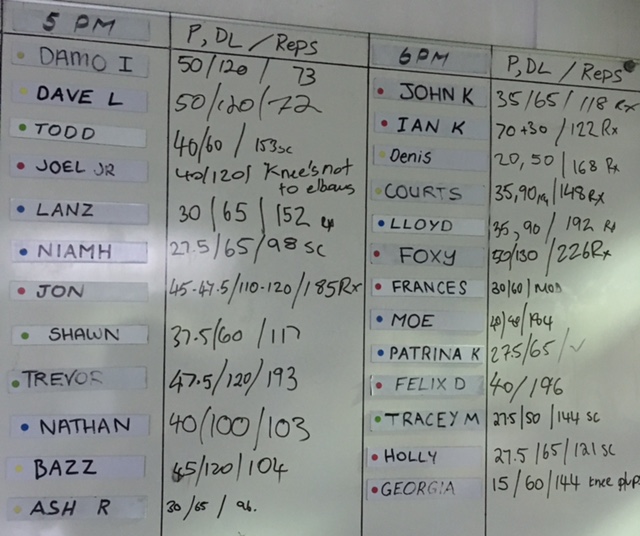 5 PM P, DL / Reps
DAMO I 50/120 / 73
DAVE L 50/120/72
TODD 40/60 / 153sc
JOEL JR 40/120/ Knee's not
to elbows
LANZ 30/65/152
NIAMH 27.5/65/98 SC
JON 45-47.5/110-120/185Rx
SHAWN 37.5/60 / 117
TREVOR 47.5/120/193
NATHAN 40/100/103
BAZZ 45/120/104
ASH R 30/65 / 96.
6PM P, DL / Reps
JOHN K 35/65/118 Rx
IAN K 70+30/122 Rx
Denis 20,50/168 Rx
COURTS 35,90/148Rx
LLOYD 35,90/192 Rx
FOXY 50/130/226Rx
FRANCES 30/60/MOD
MOE
PATRINA K 27.5/65/✓
FELIX D 40/196
TRACEY M 27.5/50/144 SC
HOLLY 27.5/65/121 SC
GEORGIA 15/60/144 knee